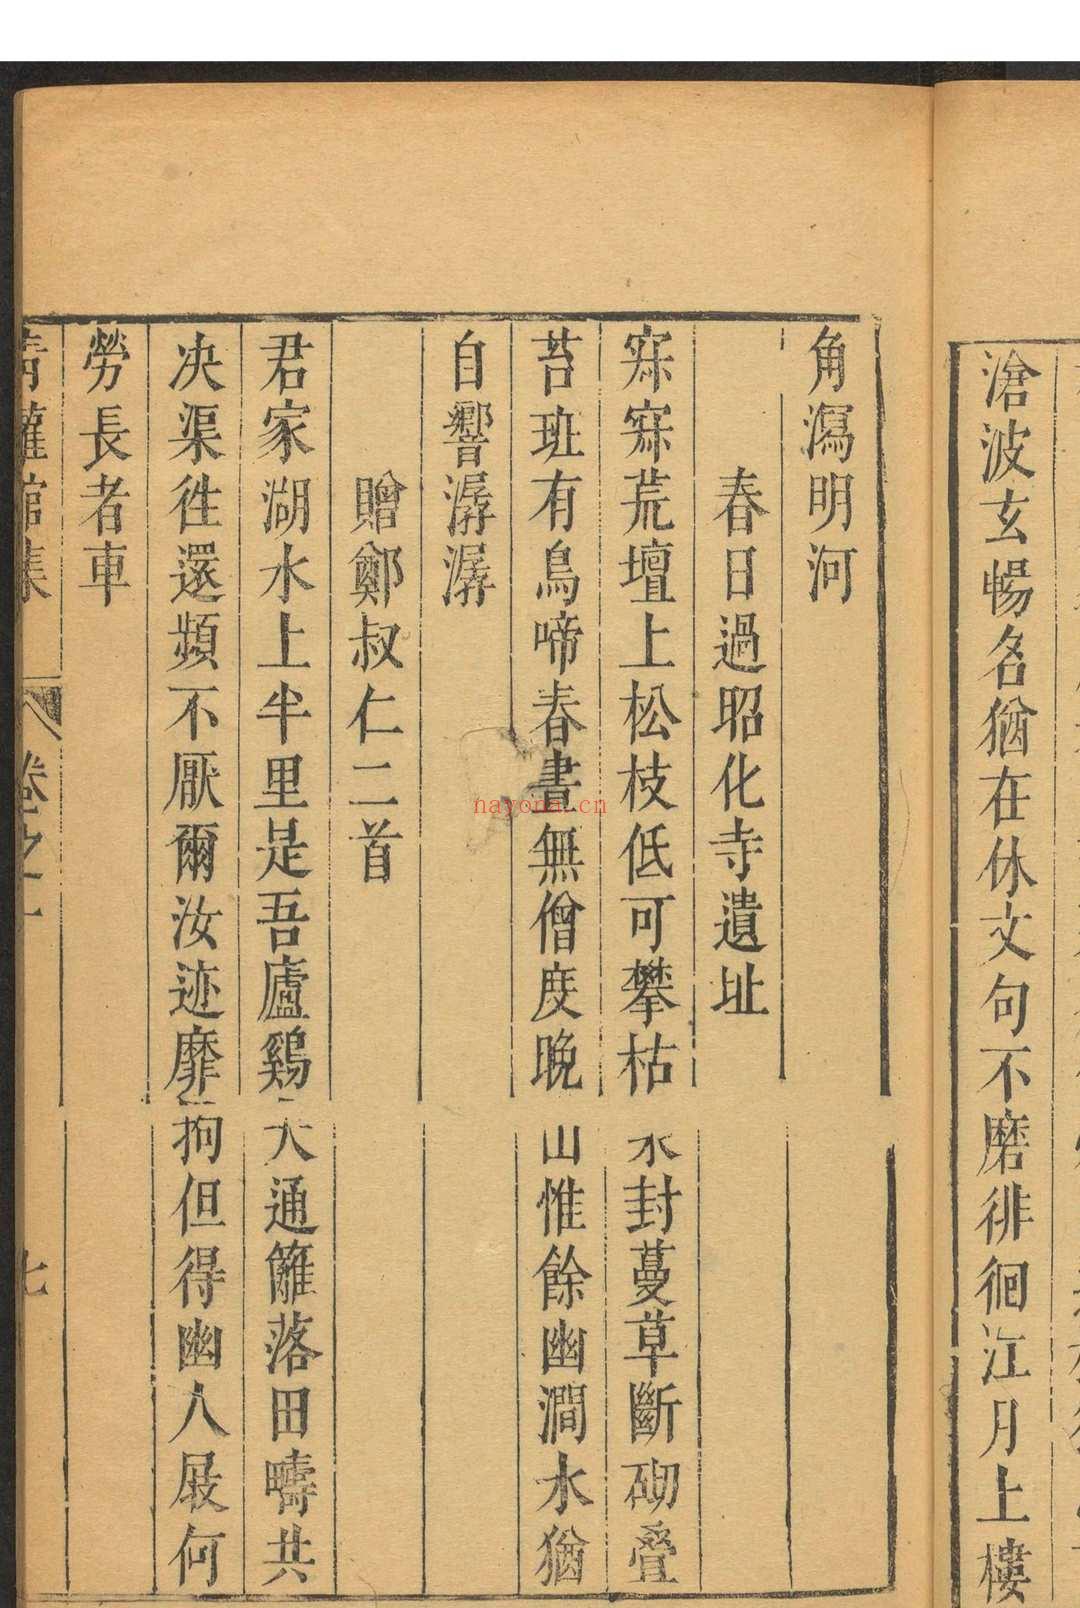 滄波玄暢名猶在休文句不磨徘徊江月上樓
角瀉明河
春日過昭化寺遺址
寂寂荒壇上松枝低可攀枯木封蔓草斷砌疊
苔斑有鳥啼春晝無僧度晚山惟餘幽澗水猶
自響潺潺
贈鄭叔仁二首
君家湖水上半里是吾廬鷄犬通籬落田疇共
决渠徃還頻不厭爾汝迹靡拘但得幽人屐何
勞長者車
蘿館集
卷之一
七
nayona.cn